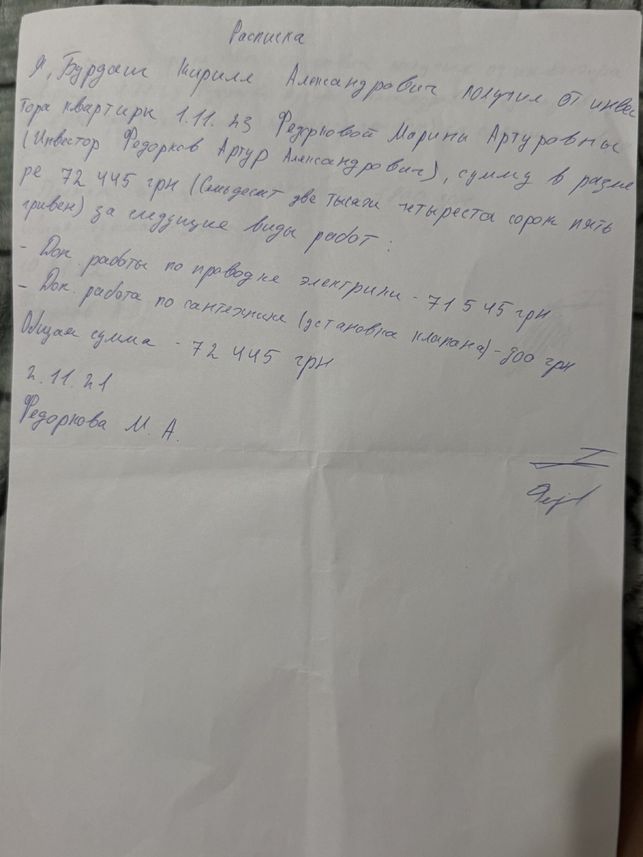 Расписка
Я, Бурдаш Кирилл Александрович получил от инвес
тора квартиры 1.11.23 Федорковой Марины Артуровны
(Инвестор Федорков Артур Александрович), сумму в разме
ре 72 445 грн (Семьдесят две тысячи четыреста сорок пять
гривен) за следущие виды работ:
- Доп. работы по проводке электрики - 71 545 грн.
- Доп. работа по сантехнике (установка клапана) - 900 грн
Общая сумма - 72 445 грн
2.11.21
Федоркова М. А.